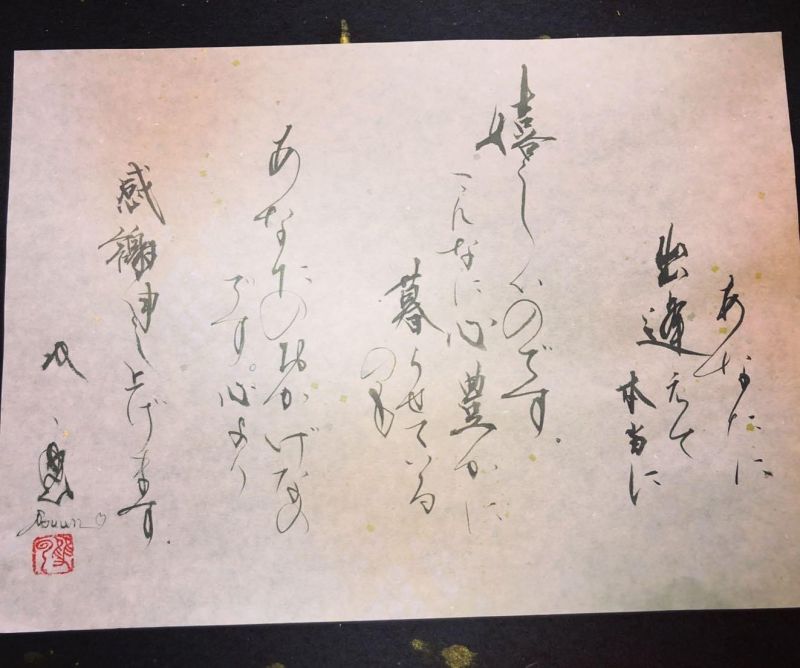 あなたに
出逢えて
本当に
嬉しいのです。
こんなに心豊かに
暮らせている
のも
あなたのおかげなの
です。心より
感謝申し上げます。